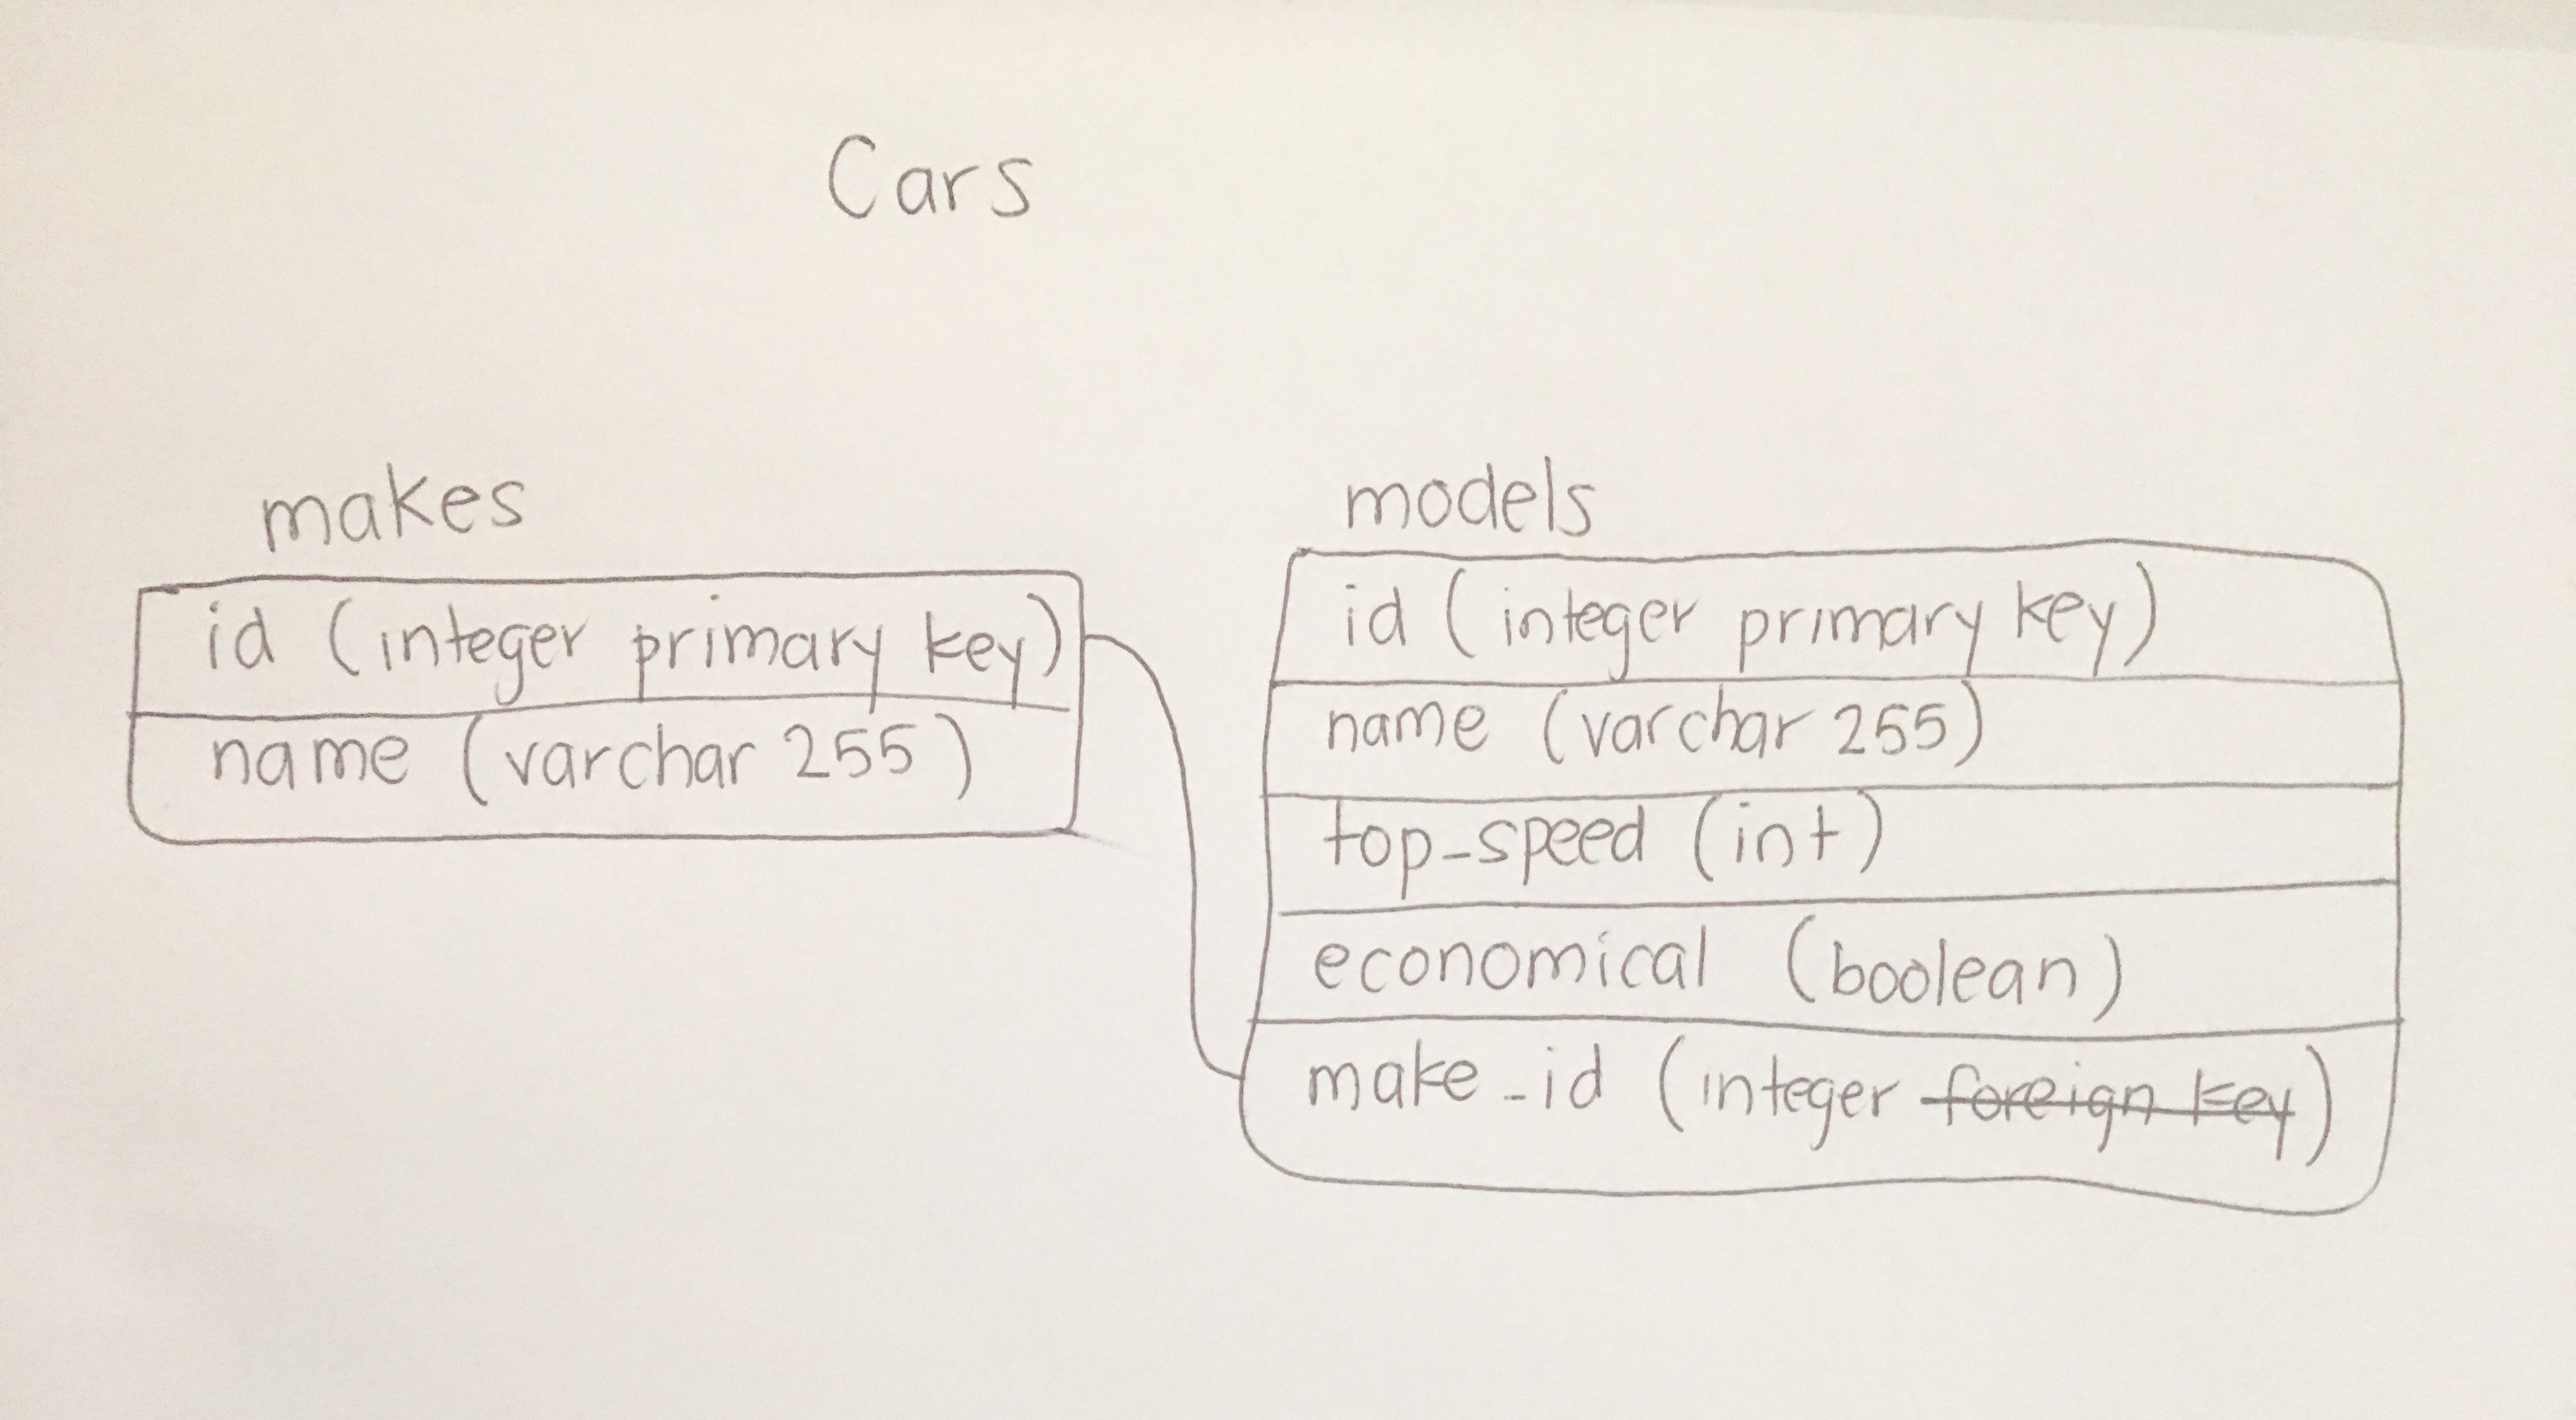 Cars
makes
id (integer primary key)
name (varchar 255)
models
id (integer primary key)
name (varchar 255)
top_speed (int)
economical (boolean)
make_id (integer foreign key)